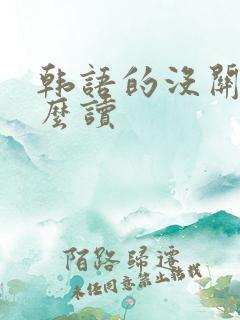 韩語的没關
麼讀
陌路歸途
未经同意禁止转载